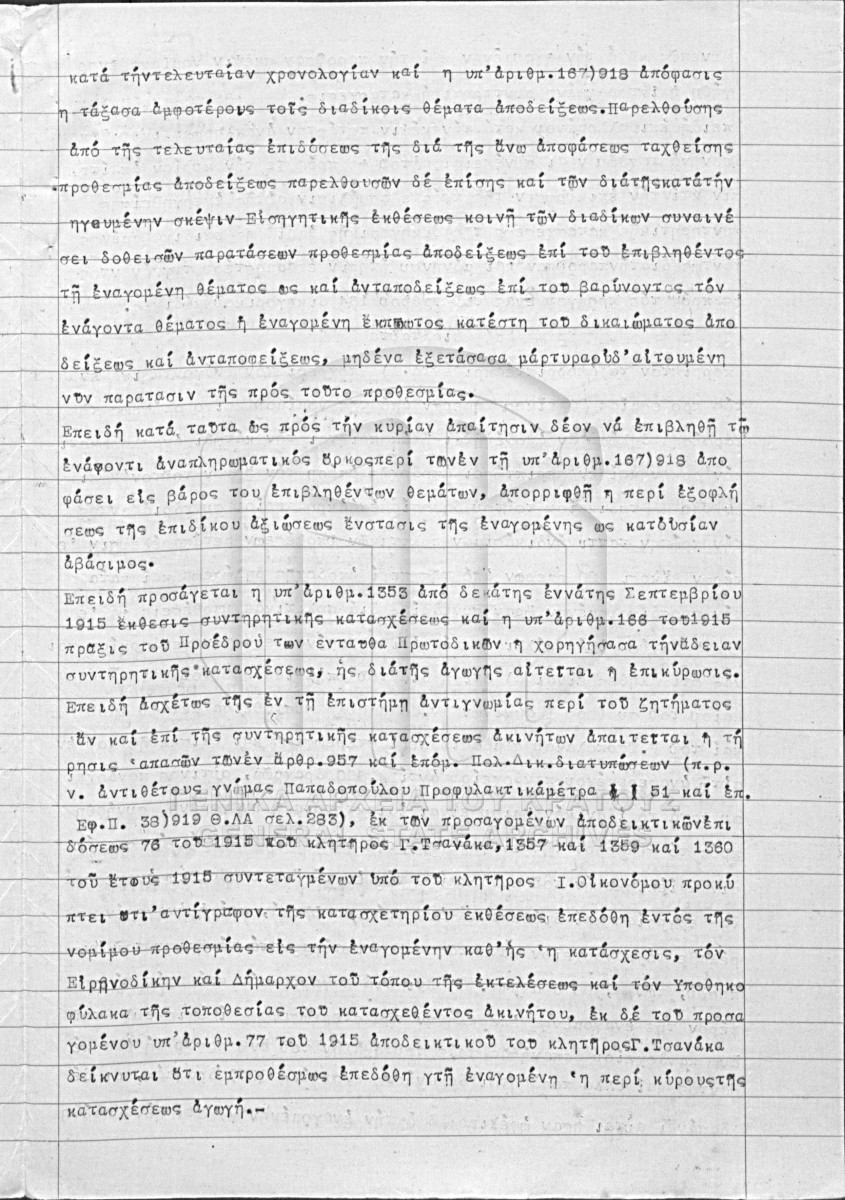 κατά τήντελευταίαν χρονολογίαν καί η υπ'ἀριθμ.167)918 ἀπόφασις
η τάξασα ἀμφοτέρους τοῖς διαδίκοις θέματα ἀποδείξεως.Παρελθούσης
ἀπό τῆς τελευταίας ἐπιδόσεως τῆς διά τῆς ἄνω ἀποφάσεως ταχθείσης
προθεσμίας ἀποδείξεως παρελθουσῶν δέ ἐπίσης καί τῶν διάτῆςκατάτήν
ηγουμένην σκέψιν Εἰσηγητικῆς ἐκθέσεως κοινῇ τῶν διαδίκων συναινέ
σει δοθεισῶν παρατάσεων προθεσμίας ἀποδείξεως ἐπί τοῦ ἐπιβληθέντος
τῇ ἐναγομένῃ θέματος ως καί ἀνταποδείξεως ἐπί του βαρύνοντος τόν
ἐνάγοντα θέματος ἡ ἐναγομένη ἔκπτωτος κατέστη τοῦ δικαιώματος ἀπο
δείξεως καί ἀνταποφείξεως, μηδένα ἐξετάσασα μάρτυραοὐδ'αἰτουμένη
νῦν παρατασιν τῆς πρός τοῦτο προθεσμίας.
Επειδή κατά ταῦτα ὡς πρός τήν κυρίαν ἀπαίτησιν δέον νά ἐπιβληθῇ τῷ
ἐνάφοντι ἀναπληρωματικός ὅρκοςπερί τωνἐν τῇ υπ'ἀριθμ.167)918 ἀπο
φάσει εἰς βάρος του ἐπιβληθέντων θεμάτων, ἀπορριφθῇ η περί ἐξοφλή
σεως τῆς ἐπιδίκου ἀξιώσεως ἔνστασις τῆς ἐναγομένης ως κατ'οὐσίαν
ἀβάσιμος.
Επειδή προσάγεται η υπ'ἀριθμ.1353 ἀπό δεκάτης ἐννάτης Σεπτεμβρίου
1915 ἔκθεσις συντηρητικῆς κατασχέσεως καί η υπ'ἀριθμ.166 του1915
πρᾶξις τοῦ Προέδρου τῶν ἐνταῦθα Πρωτοδικῶν η χορηγήσασα τήνἄδειαν
συντηρητικῆς κατασχέσεως, ἧς διάτῆς ἀγωγῆς αἰτεῖται η ἐπικύρωσις.
Επειδή ἀσχέτως τῆς ἐν τῇ ἐπιστήμῃ ἀντιγνωμίας περί τοῦ ζητήματος
ἄν καί ἐπί τῆς συντηρητικῆς κατασχέσεως ἀκινήτων ἀπαιτεῖται ἡ τή
ρησις ἁπασῶν τῶνἐν ἄρθρ.957 καί ἑπόμ. Πολ.Δικ.διατυπώσεων (π.ρ.
ν. ἀντιθέτους γνώμας Παπαδοπούλου Προφυλακτικάμέτρα § 51 καί ἑπ.
Εφ.Π. 38)919 Θ.ΛΑ σελ.283), ἐκ τῶν προσαγομένων ἀποδεικτικῶνἐπι
δόσεως 76 τοῦ 1915 τοῦ κλητῆρος Γ.Τσανάκα,1357 καί 1359 καί 1360
τοῦ ἔτους 1915 συντεταγμένων ὑπό τοῦ κλητῆρος Ι.Οἰκονόμου προκύ
πτει ὅτι'ἀντίγραφον τῆς κατασχετηρίου ἐκθέσεως ἐπεδόθη ἐντός τῆς
νομίμου προθεσμίας εἰς τήν ἐναγομένην καθ'ἧς 'η κατάσχεσις, τόν
Εἰρηνοδίκην καί Δήμαρχον τοῦ τόπου τῆς ἐκτελέσεως καί τόν Υποθηκο
φύλακα τῆς τοποθεσίας τοῦ κατασχεθέντος ἀκινήτου, ἐκ δέ τοῦ προσα
γομένου υπ'ἀριθμ.77 τοῦ 1915 ἀποδεικτικοῦ του κλητῆροςΓ.Τσανάκα
δείκνυται ὅτι ἐμπροθέσμως ἐπεδόθη γτῇ ἐναγομένῃ 'η περί κύρουςτῆς
κατασχέσεως ἀγωγή.-
ΓΕΝΙΚΑ ΑΡΧΕΙΑ ΤΟΥ ΚΡΑΤΟΥΣ
GENERAL STATE ARCHIVES